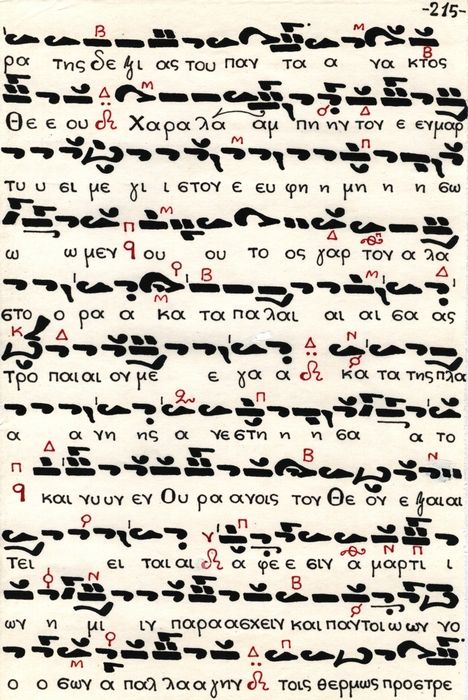 -215-
ρα της δε ξι ας του παν τα α να κτος
Θε ε ου Χαρα λα αμ πη ην τον ε εν μαρ
τυ υ σι με γι ι στον ε ευ φη μη η η σω
ω ω μεν ου ου το ος γαρ τον α λα
στο ο ρα α κα τα πα λαι αι αι σα ας
τρο παι αι ον με ε γα α κα τα της πλα
α α νη ης α νε στη η η σα α το
και νυ υν εν Ου ρα α νοις τον Θε ον ε ξαι αι
τει ει ται αι α φε ε σιν α μαρτι ι
ων η μι ιν παρα α σχειν και παν τοι ω ων νο
ο ο σων α παλ λα α γην τοις θερμως προστρε